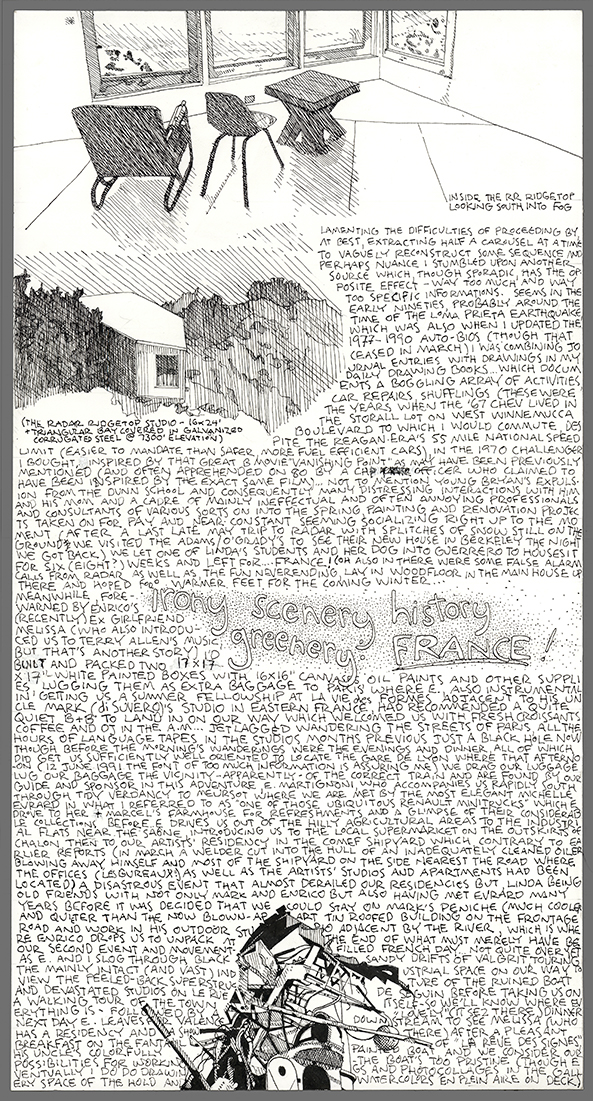 INSIDE THE RR RIDGETOP
LOOKING SOUTH INTO FOG
LAMENTING THE DIFFICULTIES OF PROCEEDING BY,
AT BEST, EXTRACTING HALF A CAROUSEL AT A TIME
TO VAGUELY RECONSTRUCT SOME SEQUENCE AND
PERHAPS NUANCE I STUMBLED UPON ANOTHER
SOURCE WHICH, THOUGH SPORADIC, HAS THE OP-
POSITE EFFECT - WAY TOO MUCH AND WAY
TOO SPECIFIC INFORMATIONS. SEEMS IN THE
EARLY NINETIES, PROBABLY AROUND THE
TIME OF THE LOMA PRIETA EARTHQUAKE
WHICH WAS ALSO WHEN I UPDATED THE
1977-1990 AUTO-BIOS (THOUGH THAT
CEASED IN MARCH) I WAS COMBINING JO
URNAL ENTRIES WITH DRAWINGS IN MY
DAILY DRAWING BOOKS... WHICH DOCUM
ENTS A BOGGLING ARRAY OF ACTIVITIES,
CAR REPAIRS, SHUFFLINGS (THESE WERE
THE YEARS WHEN THE '67 CHEV LIVED IN
THE STORALL LOT ON WEST WINNEMUCCA
BOULEVARD TO WHICH I WOULD COMMUTE, DES
PITE THE REAGAN-ERA'S 55 MILE NATIONAL SPEED
(THE RADAR RIDGETOP STUDIO • 16X24'
+ TRIANGULAR TIP COVERED IN GALVANIZED
CORRUGATED STEEL @ 7300' ELEVATION)
LIMIT (EASIER TO MANDATE THAN SAFER, MORE FUEL EFFICIENT CARS), IN THE 1970 CHALLENGER
I BOUGHT, INSPIRED BY THAT GREAT B MOVIE 'VANISHING POINT', AS MAY HAVE BEEN PREVIOUSLY
MENTIONED (AND OFTEN APPREHENDED ON 80 BY A CAP OFFICER WHO CLAIMED TO
HAVE BEEN INSPIRED BY THE EXACT SAME FILM)... NOT TO MENTION YOUNG BRYAN'S EXPULS-
ION FROM THE DUNN SCHOOL AND CONSEQUENTLY MANY DISTRESSING INTERACTIONS WITH HIM
AND HIS MOM AND A CADRE OF MAINLY INEFFECTUAL AND OFTEN ANNOYING PROFESSIONALS
AND CONSULTANTS OF VARIOUS SORTS ON INTO THE SPRING, PAINTING AND RENOVATION PROJEC
TS TAKEN ON FOR PAY AND NEAR CONSTANT SEEMING SOCIALIZING RIGHT UP TO THE MO-
MENT (AFTER A LAST LATE MAY TRIP TO RADAR WITH SPLITCHES OF SNOW STILL ON THE
GROUND & WE VISITED THE ADAMS/O'GRADYS TO SEE THEIR NEW HOUSE IN BERKELEY THE NIGHT
WE GOT BACK) WE LET ONE OF LINDA'S STUDENTS AND HER DOG INTO GUERRERO TO HOUSESIT
FOR SIX (EIGHT?) WEEKS AND LEFT FOR... FRANCE! (OH ALSO IN THERE WERE SOME FALSE ALARM
CALLS FROM RADAR AS WELL AS THE FUN NEVERENDING, LAY IN WOODFLOOR IN THE MAIN HOUSE UP
THERE AND HOPED FOR WARMER FEET FOR THE COMING WINTER...
MEANWHILE FORE-
WARNED BY ENRICO'S
(RECENTLY) EX GIRLFRIEND
MELISSA (WHO ALSO INTRODU-
CED US TO TERRY ALLEN'S MUSIC
BUT THAT'S ANOTHER STORY) I'D
irony scenery history
greenery FRANCE!
BUILT AND PACKED TWO 17 X 17
X 17" WHITE PAINTED BOXES WITH 16X16" CANVASES, OIL PAINTS AND OTHER SUPPLI
ES, LUGGING THEM AS EXTRA BAGGAGE TO PARIS WHERE E., ALSO INSTRUMENTAL
IN GETTING US SUMMER FELLOWSHIPS AT LA VIE DES FORMES, ADJACENT TO HIS UN
CLE MARK (di SUVERO)'S STUDIO IN EASTERN FRANCE, HAD RECOMMENDED A QUITE
QUIET B+B TO LAND IN ON OUR WAY WHICH WELCOMED US WITH FRESH CROISSANTS
COFFEE AND OJ IN THE A.M... JETLAGGED WANDERING THE STREETS OF PARIS, ALL THE
HOURS OF LANGUAGE TAPES IN THE STUDIOS MONTHS PREVIOUS JUST A BLACK HOLE NOW
THOUGH BEFORE THE MORNING'S WANDERINGS WERE THE EVENINGS AND DINNER, ALL OF WHICH
DID GET US SUFFICIENTLY WELL ORIENTED TO LOCATE THE GARE DE LYON WHERE THAT AFTERNO
ON (12 JUNE 1991 THE FONT OF TOO MUCH INFORMATION IS ASSURING ME) WE DRAG OUR LUGGAGE
LUG OUR BAGGAGE THE VICINITY-APPARENTLY- OF THE CORRECT TRAIN AND ARE FOUND BY OUR
GUIDE AND SPONSOR IN THIS ADVENTURE E. MARTIGNONI WHO ACCOMPANIES US RAPIDLY SOUTH
THROUGH TIDY VERDANCY TO MEURSOT WHERE WE ARE MET BY THE MOST ELEGANT MICHELLE
EVRARD IN WHAT I REFERRED TO AS 'ONE OF THOSE UBIQUITOUS RENAULT MINITRUCKS' WHICH E.
DROVE TO HER + MARCEL'S FARMHOUSE FOR REFRESHMENTS AND A GLIMPSE OF THEIR CONSIDERAB
LE COLLECTIONS BEFORE E. DRIVES US OUT OF THE HILLY AGRICULTURAL AREAS TO THE INDUSTRI
AL FLATS NEAR THE SAÔNE, INTRODUCING US TO THE LOCAL SUPERMARKET ON THE OUTSKIRTS OF
CHALON THEN TO OUR ARTISTS' RESIDENCY IN THE COMEF SHIPYARD WHICH CONTRARY TO EA
RLIER REPORTS (IN MARCH A WELDER CUT INTO THE HULL OF AN INADEQUATELY CLEANED OILER
BLOWING AWAY HIMSELF AND MOST OF THE SHIPYARD ON THE SIDE NEAREST THE ROAD WHERE
THE OFFICES (LES BUREAUX!) AS WELL AS THE ARTISTS' STUDIOS AND APARTMENTS HAD BEEN
LOCATED) A DISASTROUS EVENT THAT ALMOST DERAILED OUR RESIDENCIES BUT LINDA BEING
OLD FRIENDS WITH NOT ONLY MARK AND ENRICO BUT ALSO HAVING MET EVRARD MANY
YEARS BEFORE IT WAS DECIDED THAT WE COULD STAY ON MARK'S PENICHE (MUCH COOLER
AND QUIETER THAN THE NOW BLOWN-APART TIN ROOFED BUILDING ON THE FRONTAGE
ROAD AND WORK IN HIS OUTDOOR STUDIO ADJACENT BY THE RIVER, WHICH IS WHE
RE ENRICO DROPS US TO UNPACK AT THE END OF WHAT MUST MERELY HAVE BE
OUR SECOND EVENT AND MOVEMENT FILLED FRENCH DAY, NOT QUITE OVER YET
AS E. AND I SLOG THROUGH BLACK SANDY DRIFTS OF VALGRIT DURING
THE MAINLY INTACT (AND VAST) IND USTRIAL SPACE ON OUR WAY TO
VIEW THE PEELED-BACK SUPERSTRUC TURE OF THE RUINED BOAT
AND DEVASTATED STUDIOS ON LE RUE DE SEGUIN BEFORE TAKING US ON
A WALKING TOUR OF THE TOWN ITSELF- SO WE'LL KNOW WHERE EV
ERYTHING IS - FOLLOWED BY LOVELY (IT SEZ THERE) DINNER
NEXT DAY E. LEAVES FOR VALENCE DOWNSTREAM TO SEE MELISSA (WHO
HAS A RESIDENCY AND A THERE) AFTER A PLEASANT
BREAKFAST ON THE FANTAIL OF 'LA RÊVE DES SIGNES'
HIS UNCLE'S COLORFULLY PAINTED BOAT AND WE CONSIDER OUR
POSSIBILITIES FOR WORKING BOAT'S TOO PRISTINE (THOUGH E
VENTUALLY I DO DO DRAWIN GS AND PHOTOCOLLAGES IN THE GALL
ERY SPACE OF THE HOLD AND WATERCOLORS EN PLEIN AIRE ON DECK)